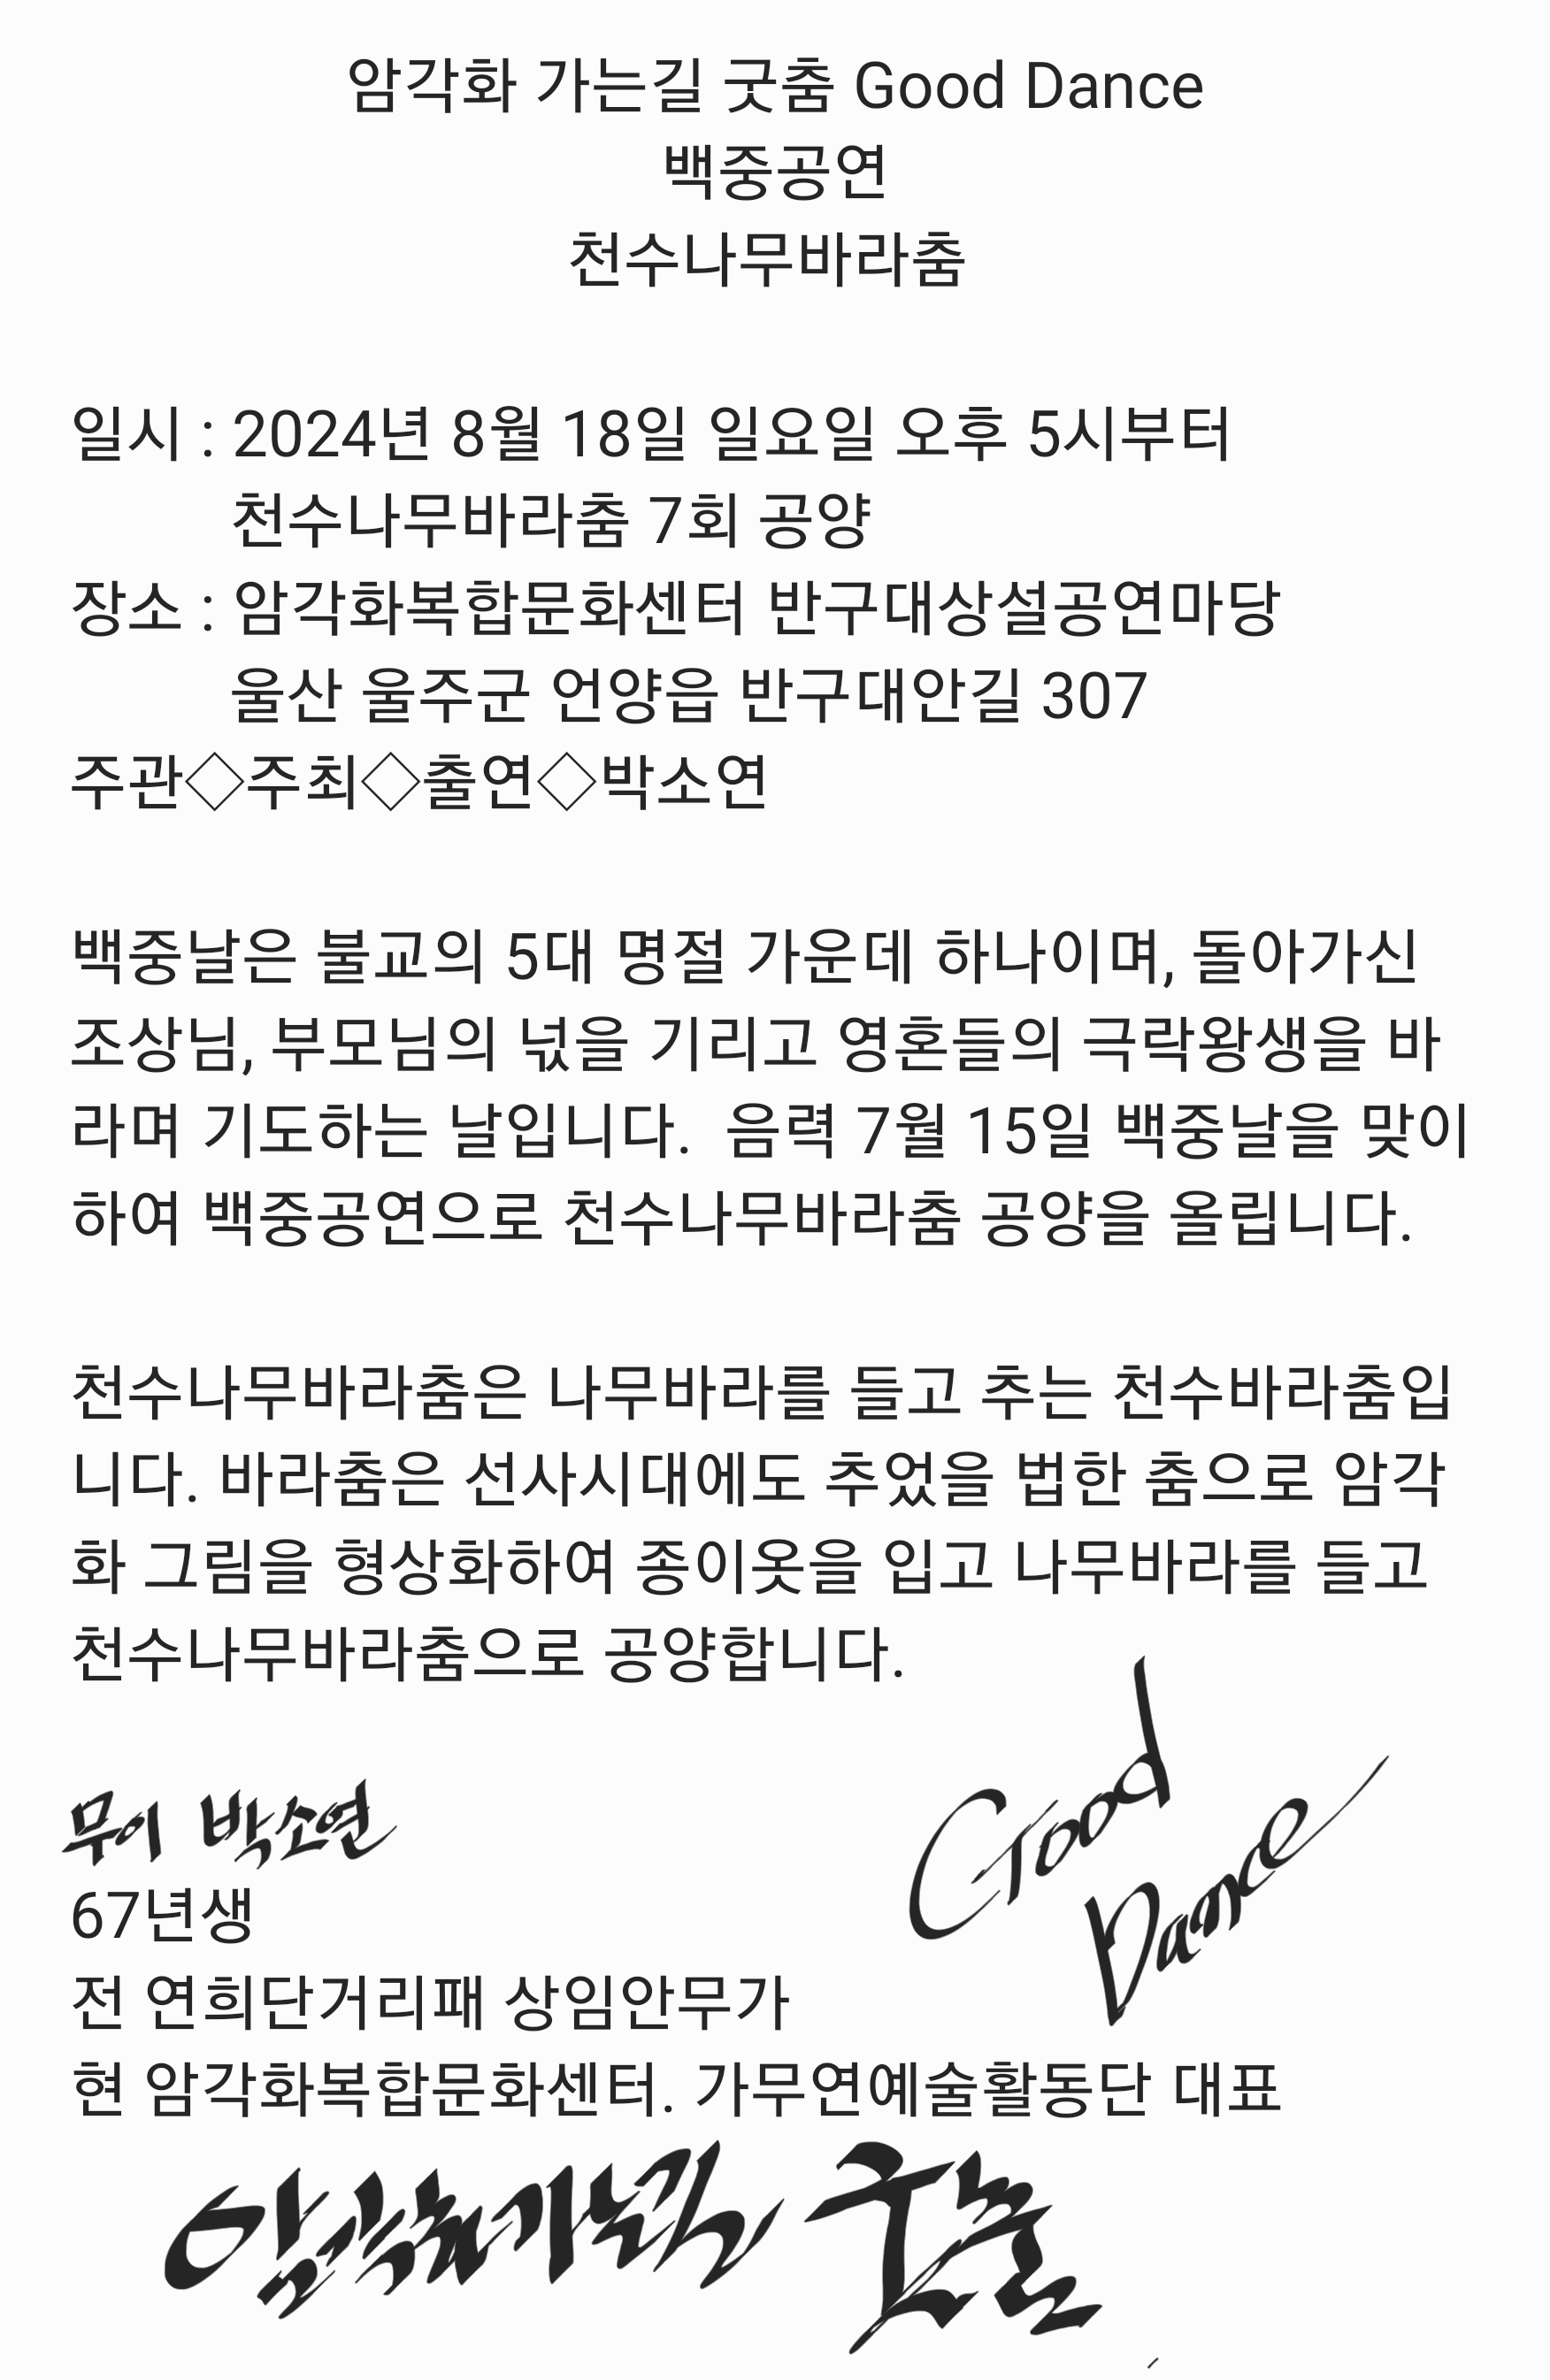 암각화 가는길 굿춤 Good Dance
백중공연
천수나무바라춤
일시 : 2024년 8월 18일 일요일 오후 5시부터
천수나무바라춤 7회 공양
장소 : 암각화복합문화센터 반구대상설공연마당
울산 울주군 언양읍 반구대안길 307
주관◇주최◇출연◇박소연
백중날은 불교의 5대 명절 가운데 하나이며, 돌아가신
조상님, 부모님의 넋을 기리고 영혼들의 극락왕생을 바
라며 기도하는 날입니다. 음력 7월 15일 백중날을 맞이
하여 백중공연으로 천수나무바라춤 공양을 올립니다.
천수나무바라춤은 나무바라를 들고 추는 천수바라춤입
니다. 바라춤은 선사시대에도 추었을 법한 춤으로 암각
화 그림을 형상화하여 종이옷을 입고 나무바라를 들고
천수나무바라춤으로 공양합니다.
Good
Dance
무이 박소연
67년생
전 연희단거리패 상임안무가
현 암각화복합문화쎈터. 가무연예술활동단 대표
암각화가는길 굿춤